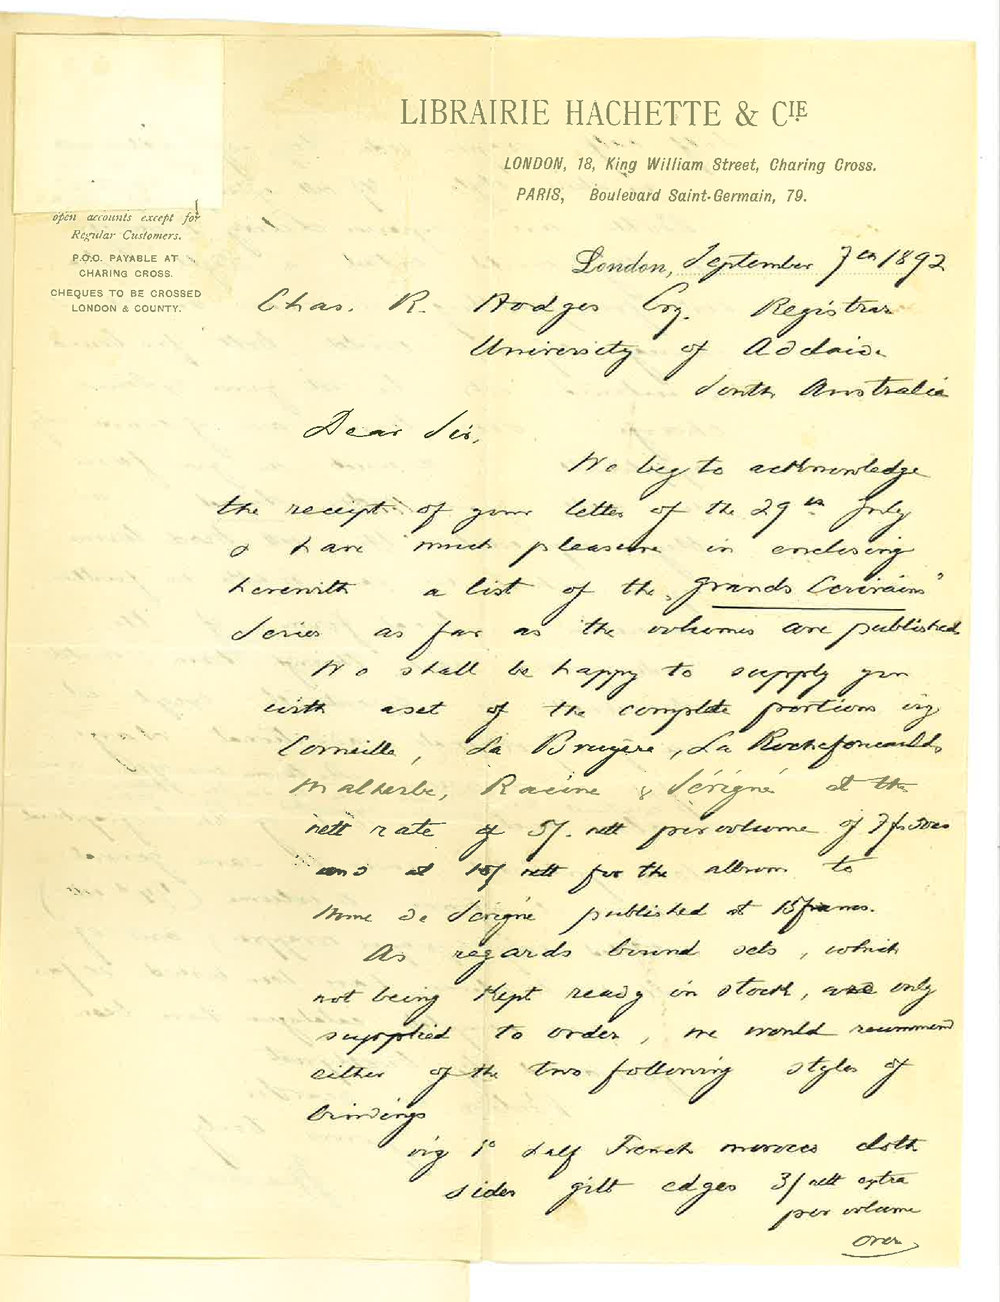 LIBRAIRIE HACHETTE & CIE
LONDON, 18, King William Street, Charing Cross.
PARIS, Boulevard Saint-Germain, 79.
open accounts except for
Regular Customers.
P.O.O. PAYABLE AT
CHARING CROSS.
CHEQUES TO BE CROSSED
LONDON & COUNTY.
London, September 7th 1892
Chas. R. Hodges Esq. Registrar
University of Adelaide
South Australia
Dear Sir,
We beg to acknowledge
the receipt of your letter of the 29th July
& have much pleasure in enclosing
herewith a list of the "Grands Ecrivains"
Series as far as the volumes are published
We shall be happy to supply you
with a set of the complete portions viz
Corneille, La Bruyère, La Rochefoucauld,
Malherbe, Racine & Sévigné at the
nett rate of 5/. nett per volume of 7 frs 50cs
and at 10/ nett for the album to
Mme de Sévigné published at 15 francs.
As regards bound sets, which
not being kept ready in stock, are only
supplied to order, we would recommend
either of the two following styles of
bindings
viz 1° half French morocco cloth
sides gilt edges 3/ nett extra
per volume
over